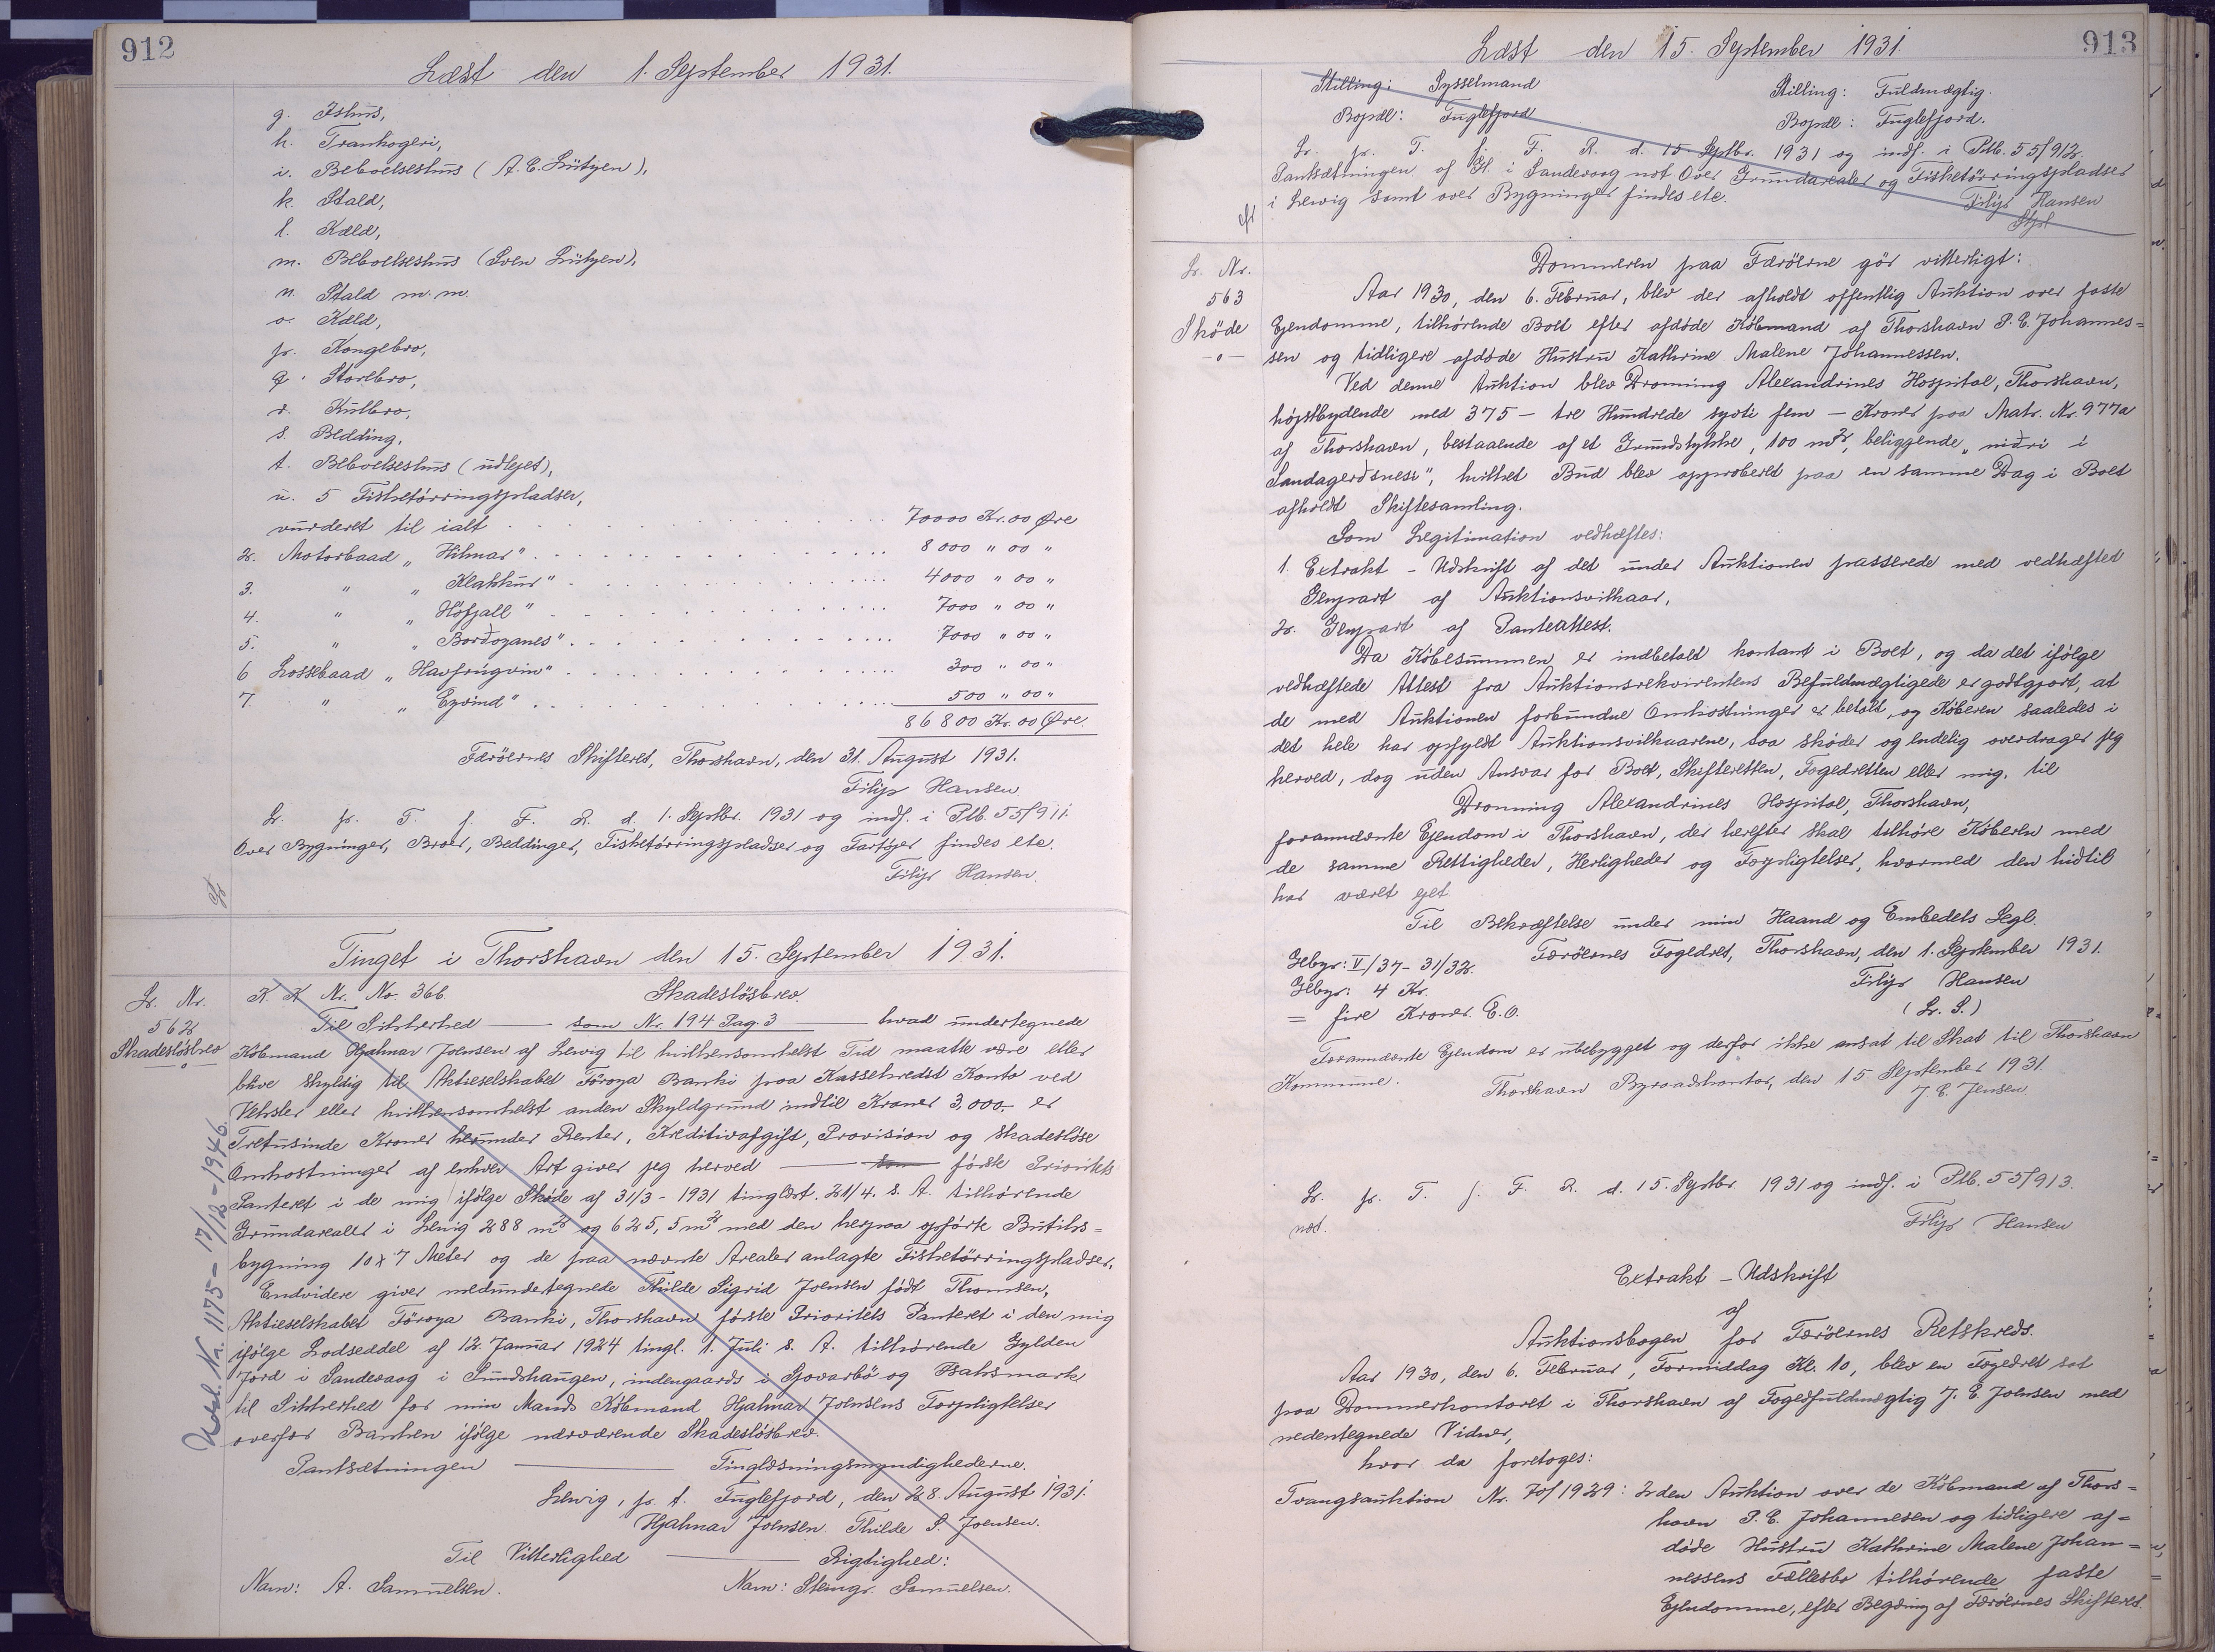 912
Læst den 1. September 1931.
g. Ishus,
h. Trankogeri,
i. Beboelseshus (A. C. Lützen),
k. Stald,
l. Kæld,
m. Beboelseshus (Sven Lützen),
n. Stald m. m.
o. Kæld,
p. Kongebro,
q. Storebro,
r. Kulbro,
s. Bedding,
t. Beboelseshus (udlejet),
u. 5 Fisketörringspladser,
vurderet til ialt . . . 70000 Kr. 00 Øre
2. Motorbaad „Hilmar" . . . 8000 " 00 "
3. " „Klakkur" . . . 4000 " 00 "
4. " „Höfjall" . . . 7000 " 00 "
5. " „Borðoyanes" . . . 7000 " 00 "
6 Lossebaad „Havfrúgvin" . . . 300 " 00 "
7. " „Eyvind" . . . 500 " 00 "
86800 Kr. 00 Øre.
Færöernes Skifteret, Thorshavn, den 31. August 1931.
Filip Hansen.
L. p. T. f. F. R. d. 1. Septbr. 1931 og indf. i Ptb. 55/911.
Over Bygninger, Broer, Beddinger, Fisketörringspladser og Fartöjer findes etc.
Filip Hansen.
Tinget i Thorshavn den 15. September 1931.
L. Nr.
562
Skadeslösbrev
K. K Nr. No. 366. Skadeslösbrev.
Til Sikkerhed — som Nr. 194 Pag. 3 — hvad undertegnede
Köbmand Hjalmar Joensen af Lervig til hvilkensomhelst Tid maatte være eller
blive skyldig til Aktieselskabet Föroya Banki paa Kassekredit Konto ved
Veksler eller hvilkensomhelst anden Skyldgrund indtil Kroner 3,000.- er
Tretusinde Kroner herunder Renter, Kreditivafgift, Provision og skadeslöse
Omkostninger af enhver Art giver jeg herved — som förste Prioritets
Panteret i de mig ifölge Sköde af 31/3-1931 tinglæst. 21/4. s. A. tilhörende
Grundarealer i Lervig 288 m² og 625,5 m² med den herpaa opförte Butiks=
bygning 10 x 7 Meter og de paa nævnte Arealer anlagte Fisketörringspladser.
Endvidere giver medundertegnede Thilde Sigrid Joensen födt Thomsen,
Aktieselskabet Föroya Banki, Thorshavn förste Prioritets Panteret i den mig
ifölge Lodseddel af 12. Januar 1924 tingl. 1. Juli s. A. tilhörende Gylden
Jord i Sandevaag i Sundshaugen, indengaards i Gjovarbö og Baksmark
til Sikkerhed for min Mands Köbmand Hjalmar Joensens Forpligtelser
overfor Banken ifölge nærværende Skadeslösbrev.
Pantsætningen — Tinglæsningsmyndighederne.
Lervig, p. t. Fuglefjord, den 28. August 1931.
Hjalmar Joensen. Thilde S. Joensen.
Til Vitterlighed — Rigtighed:
Navn: A. Samuelsen. Navn: Steingr. Samuelsen.
Udsl. Nr. 1175 - 17/12 - 1946.
913
Læst den 15. September 1931.
Stilling: Sysselmand Stilling: Fuldmægtig.
Bopæl: Fuglefjord Bopæl: Fuglefjord.
L. p. T. f. F. R. d. 15. Septbr. 1931 og indf. i Ptb. 55/912.
Pantsætningen af Gl. i Sandevaag not Over Grundarealer og Fisketörringspladser
i Lervig samt over Bygninger findes etc.
Filip Hansen
L. Nr.
563
Sköde
Dommeren paa Færöerne gör vitterligt:
Aar 1930, den 6. Februar, blev der afholdt offentlig Auktion over faste
Ejendomme, tilhörende Boet efter afdöde Köbmand af Thorshavn P. C. Johannes=
sen og tidligere afdöde Hustru Kathrine Malene Johannessen.
Ved denne Auktion blev Dronning Alexandrines Hospital, Thorshavn,
höjstbydende med 375 – tre Hundrede syvti fem – Kroner paa Matr. Nr. 977a
af Thorshavn, bestaaende af et Grundstykke, 100 m², beliggende „niðri i
Sandagerðsnesi", hvilket Bud blev approberet paa en samme Dag i Boet
afholdt Skiftesamling.
Som Legitimation vedhæftes:
1. Extrakt - Udskrift af det under Auktionen passerede med vedhæftet
Genpart af Auktionsvilkaar,
2. Genpart af Panteattest.
Da Köbesummen er indbetalt kontant i Boet, og da det ifölge
vedhæftede Attest fra Auktionsrekvirentens Befuldmægtigede er godtgjort, at
de med Auktionen forbundne Omkostninger er betalt, og Köberen saaledes i
det hele har opfyldt Auktionsvilkaarene, saa sköder og endelig overdrager jeg
herved, dog uden Ansvar for Boet, Skifteretten, Fogedretten eller mig, til
Dronning Alexandrines Hospital, Thorshavn,
forannævnte Ejendom i Thorshavn, der herefter skal tilhöre Köberen med
de samme Rettigheder, Herligheder og Forpligtelser, hvormed den hidtil
har været ejet.
Til Bekræftelse under min Haand og Embedets Segl.
Gebyr: V/37-31/32. Færöernes Fogedret, Thorshavn, den 1. September 1931.
Gebyr: 4 Kr. Filip Hansen
= fire Kroner. E. O. (L. S.)
Forannævnte Ejendom er ubebygget og derfor ikke ansat til Skat til Thorshavn
Kommune. Thorshavn Byraadskontor, den 15. September 1931.
J. C. Jensen.
L. p. T. f. F. R. d. 15. Septbr. 1931 og indf. i Ptb. 55/913.
not. Filip Hansen
Extrakt - Udskrift
af
Auktionsbogen for Færöernes Retskreds.
Aar 1930, den 6. Februar, Formiddag Kl. 10, blev en Fogedret sat
paa Dommerkontoret i Thorshavn af Fogedfuldmægtig J. E. Joensen med
nedentegnede Vidner,
hvor da foretoges:
Tvangsauktion Nr. 70/1929: 2den Auktion over de Köbmand af Thors=
havn P. C. Johannesen og tidligere af=
döde Hustru Kathrine Malene Johan=
nessens Fællesbo tilhörende faste
Ejendomme, efter Begæring af Færöernes Skifteret